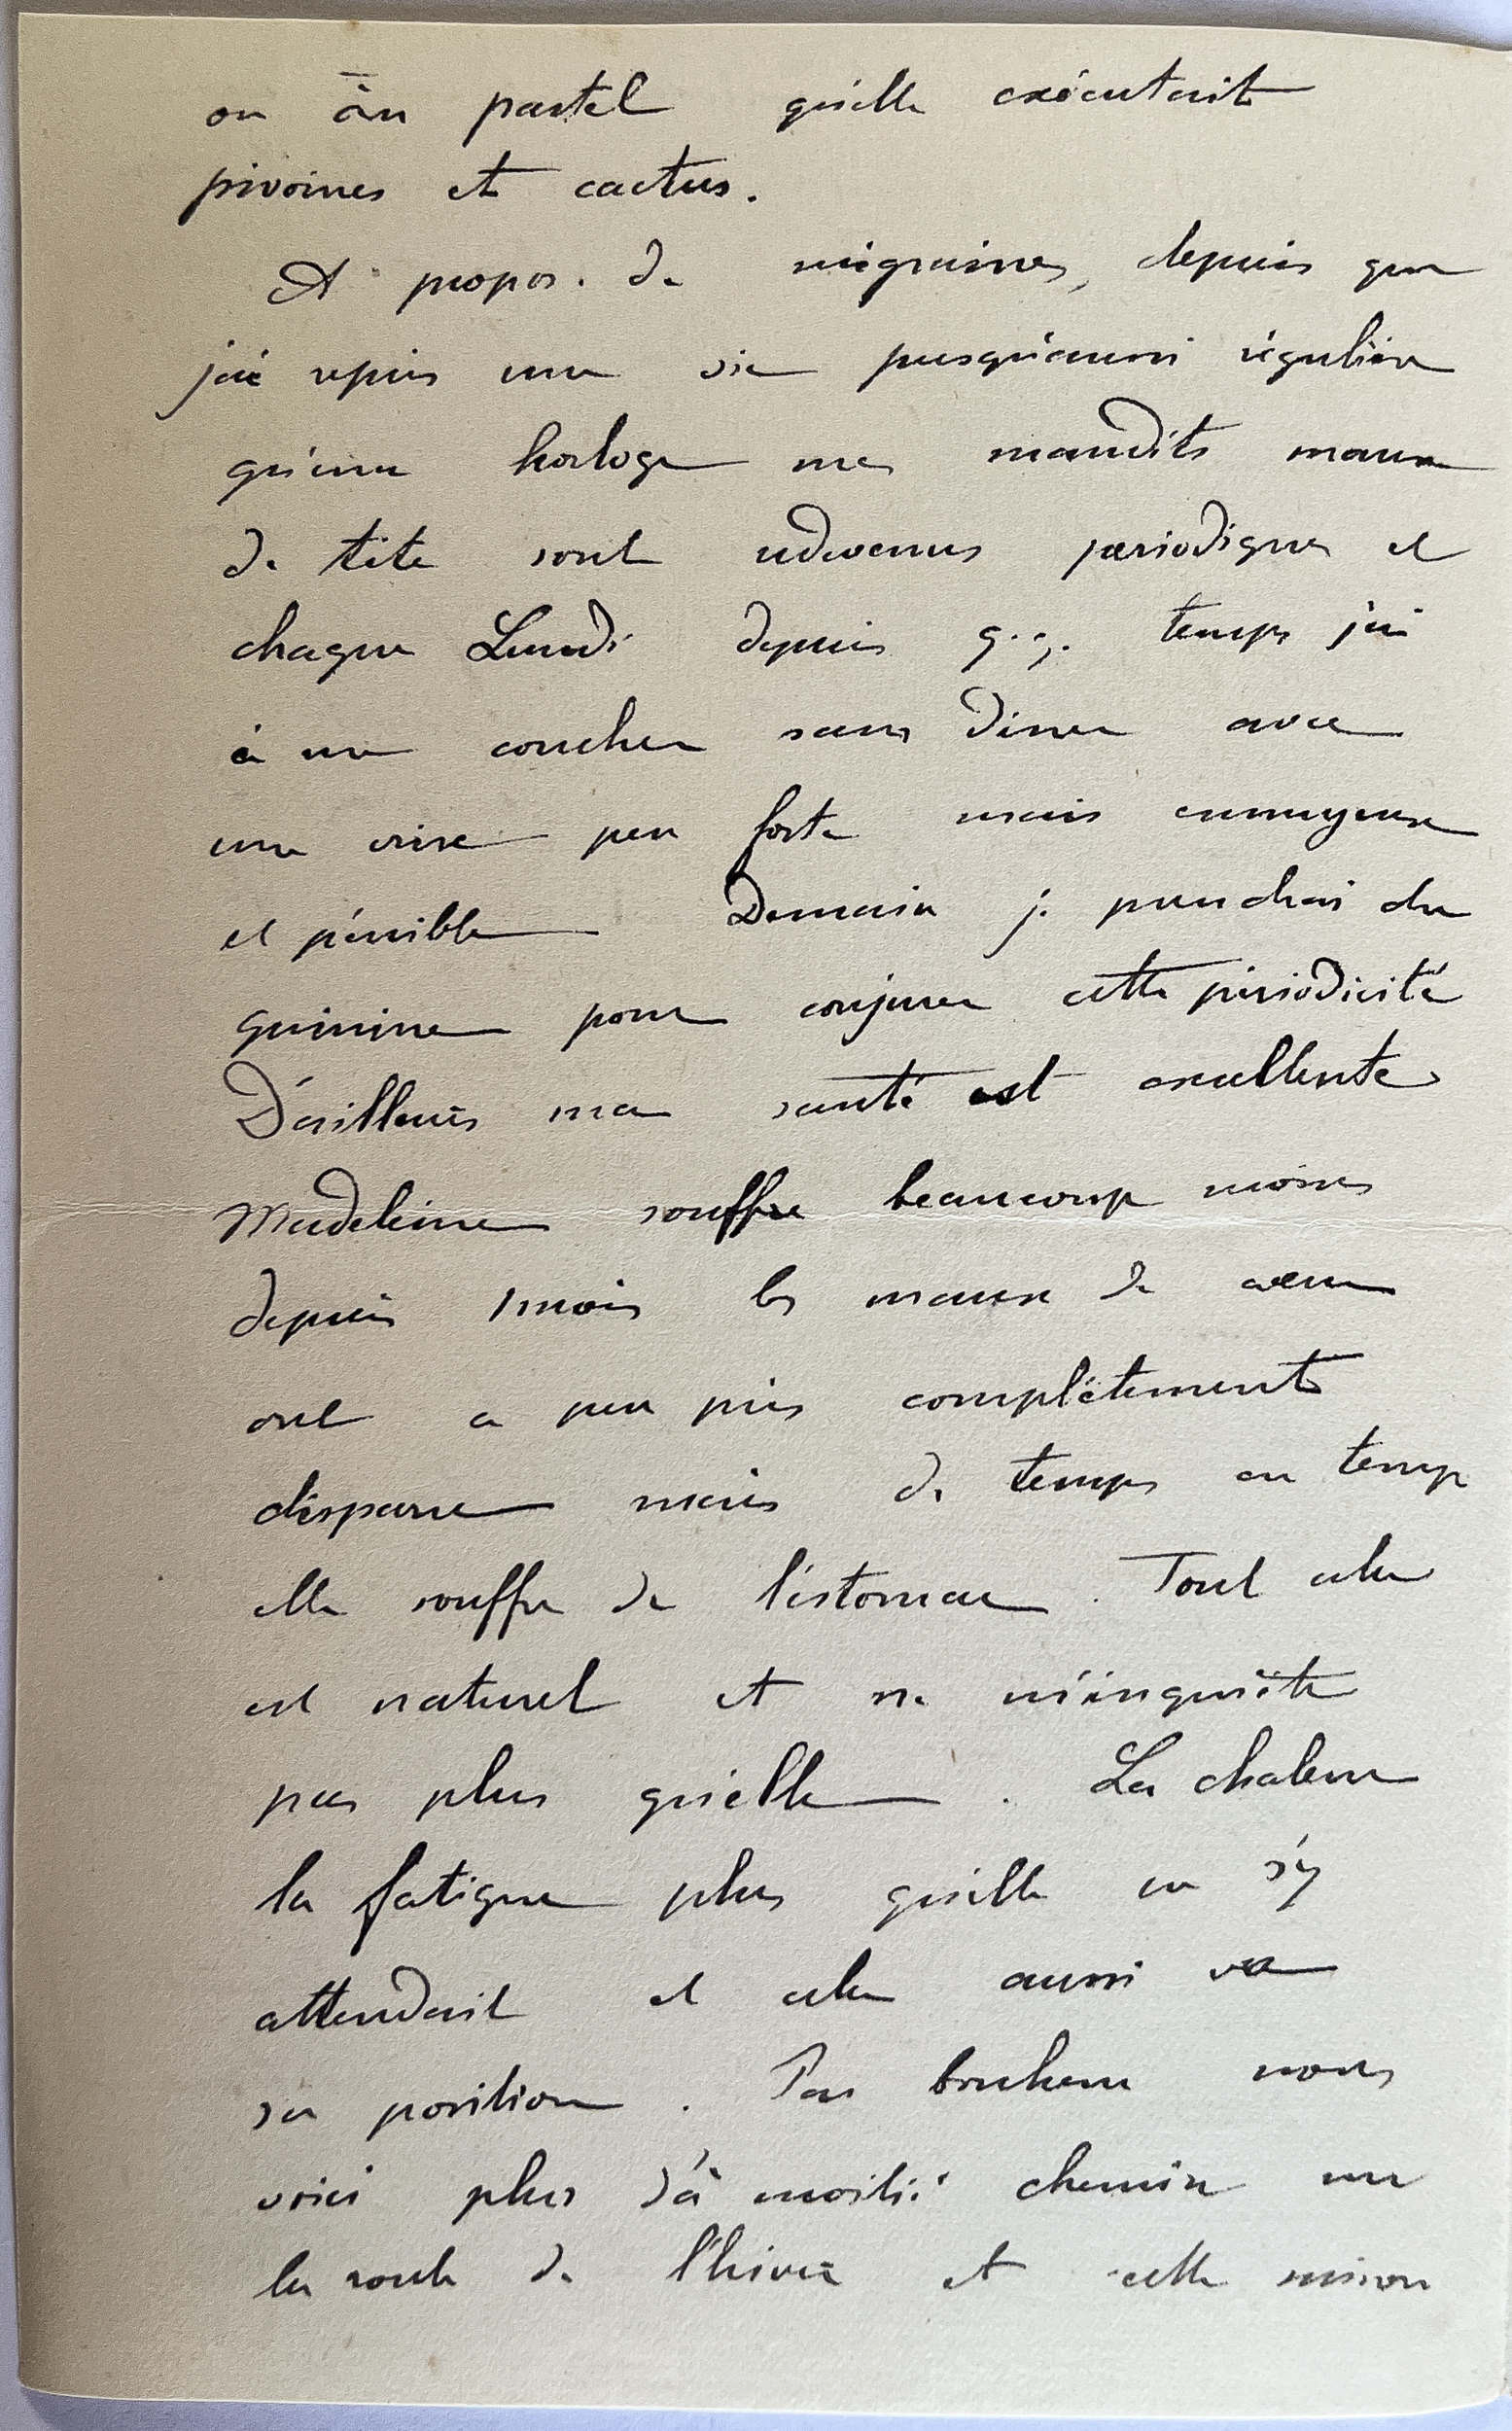 ou un pastel qu'elle exécutait
pivoines et cactus.
A propos de migraines, depuis que
j'ai repris une vie presqu'aussi régulière
qu'une horloge mes maudits maux
de tête sont redevenus périodiques et
chaque Lundi depuis q.q. temps j'ai
à me coucher sans dîner avec
une crise peu forte mais ennuyeuse
et pénible Demain je prendrai du
quinine pour conjurer cette périodicité
D'ailleurs ma santé est excellente
Madeleine souffre beaucoup moins
depuis 1 mois les maux de cœur
ont a peu près complètement
disparu mais de temps en temp
elle souffre de l'estomac. Tout cela
est naturel et ne m'inquiète
pas plus qu'elle. La chaleur
la fatigue plus qu'elle ne s'y
attendait et cela aussi va
sa position. Par bonheur nous
voici plus d'à moitié chemin sur
la route de l'hiver et cette